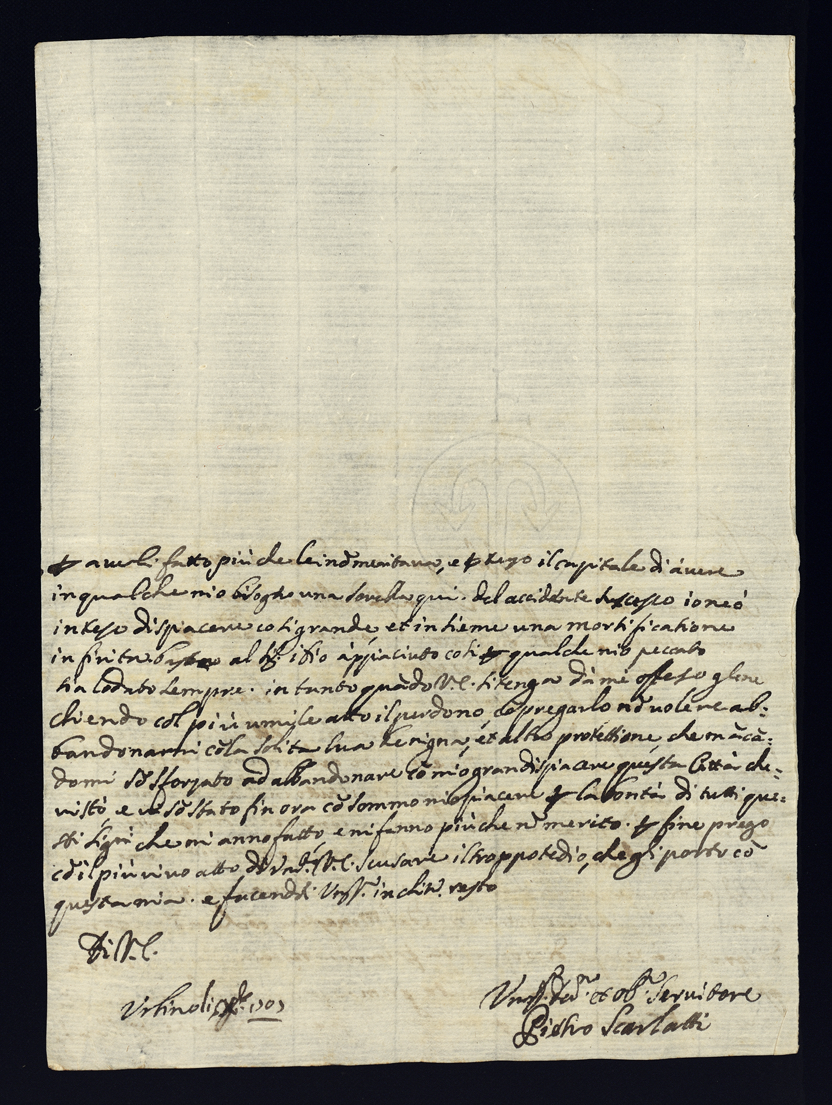 aveli fatto più che le in meritava, e tego il capitale di avere
in qualche mio bisogno una sorella qui. del accidente successo io ne ò
inteso dispiacere cosi grande, et insieme una mortificatione
infinita. al idio à piaciuto cosi qualche mio peccato
sia lodato sempre. in tanto quādo V.E. si tenga dà me offeso gliene
chiendo col più umile atto il perdono, e pregarlo nō volere ab=
bandonarmi cō la solita sua benigna, et alta protettione, che mācā=
domi sō sforzato ad abbandonare cō mio gran dispiacere questa Città che=
visto, e vi sō stato fin ora cō sommo mio piacere la bontà di tutti que=
sti sigri che mi anno fatto, e mi fanno più che nō merito. fine prego
cō il più vivo atto V.E. scusare il troppo tedio, che gli porto cō
questa mia. e facendoli inchin. resto
Di V.E.
Urbino li 1705
Servitore
Pietro Scarlatti